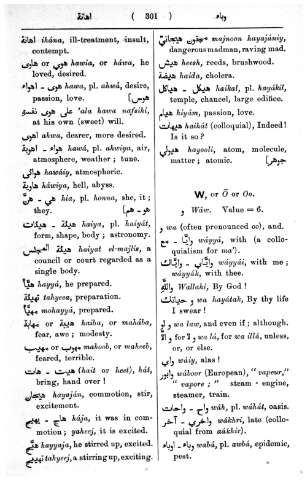 اهانة
( 301 )
وباء
اهانة ihána, ill-treatment, insult,
contempt.
هوي or هاوى hawia, or háwa, he
loved, desired.
هوى - اهواء hawa, pl. ahwá, desire,
passion, love. [هوس
على هوى نفسو 'ala hawa nafsihi,
at his own (sweet) will.
اهوى ahwa, dearer, more desired.
هوا - اهوية hawá, pl. ahwiya, air,
atmosphere, weather; tune.
هوائي hawáiy, atmospheric.
هاوية háwiya, hell, abyss.
هي - هن hia, pl. honna, she, it;
they. [هو - هم
هيئة - هيئات haiya, pl. haiyát,
form, shape, body; astronomy.
هيئة المجلس haiyat el-majlis, a
council or court regarded as a
single body.
هيأ hayya, he prepared.
تهيئة tahyeea, preparation.
مهيأ mohayyá, prepared.
هيبة or مهابة haiba, or mahába,
fear, awe; modesty.
مهوب or مهيب mahoob, or maheeb,
feared, terrible.
هيت - هات (hait or heet), hát,
bring, hand over!
هيجان hayaján, commotion, stir,
excitement.
هاج - يهيج hája, it was in com-
motion; yaheej, it is excited.
هيج hayyaja, he stirred up, excited.
تهييج tahyeej, a stirring up, exciting.
مجنون هيجاني majnoon hayajániy,
dangerous madman, raving mad.
هيش heesh, reeds, brushwood.
هيضة haida, cholera.
هيكل - هياكل haikal, pl. hayákil,
temple, chancel, large edifice.
هيام hiyám, passion, love.
هيهات haihát (colloquial), Indeed!
Is it so?
هيولي hayooli, atom, molecule,
matter; atomic. [جوهر
W, or Ō or Oo.
و Wáw. Value = 6.
و wa (often pronounced oo), and.
وايا - مع wáyyá, with (a collo-
quialism for ma').
واياي - واياك wáyyái, with me;
wáyyák, with thee.
والله Wallahi, By God!
وحياتك wa hayátak, By thy life
I swear!
ولو wa law, and even if; although.
ولا or والا wa lá, for wa illá, unless,
or, or else.
واي wáiy, alas!
وابور wáboor (European), "vapeur,"
"vapore;" steam - engine,
steamer, train.
واح - واحات wáh, pl. wáhát, oasis.
واخري - آخر wákhri, late (collo-
quial from aákhir).
وبا - اوباء wabá, pl. awbá, epidemic,
pest.